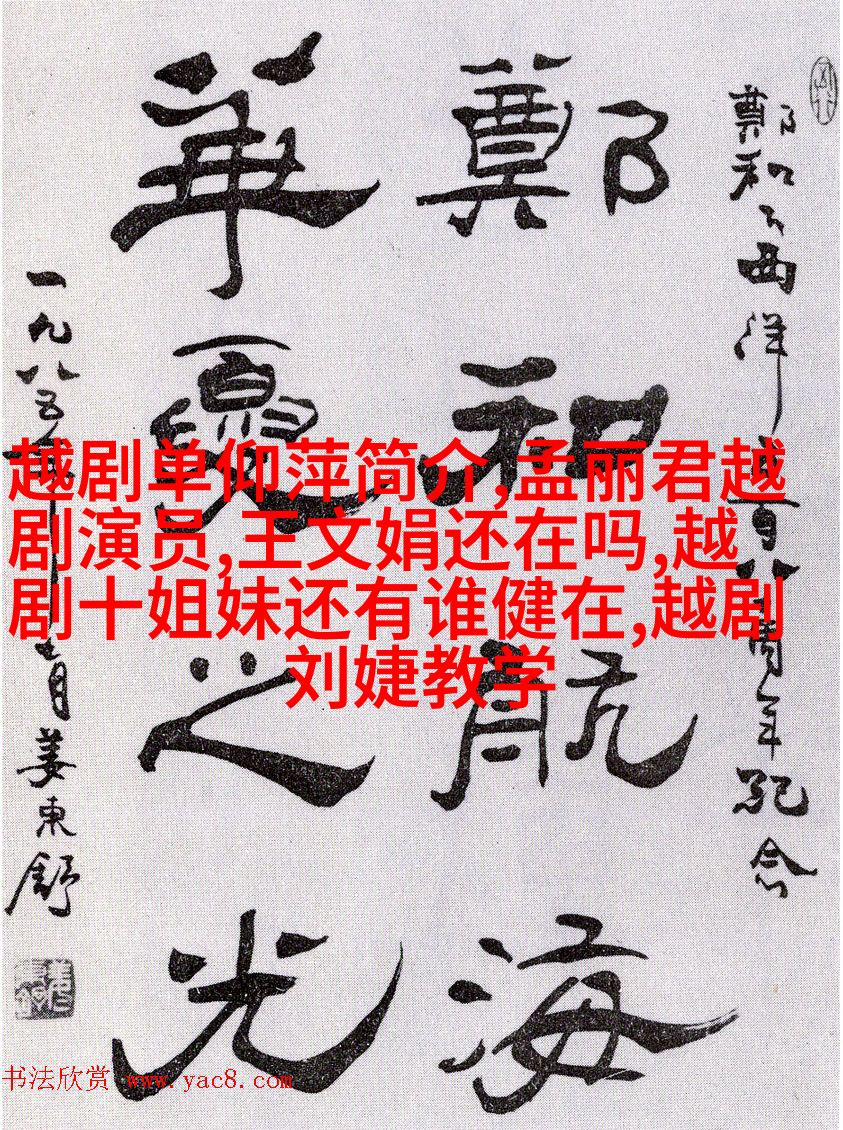 鄭和下西洋百八周年紀念
鄭和航海
華夏之光
一九八五年月姜東舒
越剧单仰萍简介,孟丽君越
剧演员,王文娟还在吗,越
剧十姐妹还有谁健在,越剧
刘婕教学
书法欣赏 www.yac8.com